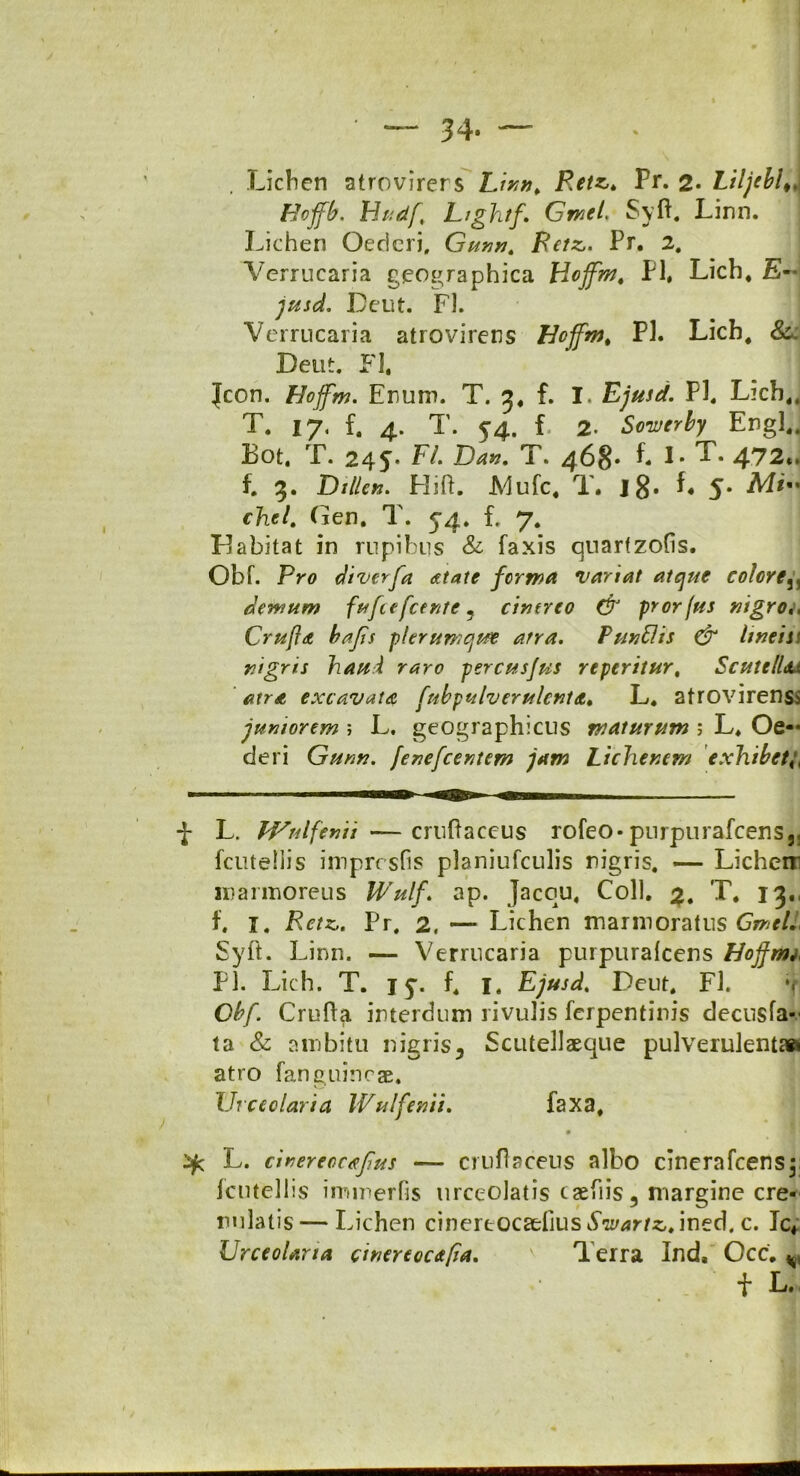 — 34. —
Lichen atrovirens Linn. Retz. Pr. 2. Liljebl.
Hoffb. Hudſ. Lightf. Gmel. Syſt. Linn.
Lichen Oederi. Gunn. Retz. Pr. 2.
Verrucaria geographica Hoffm. Pl. Lich. E-
jusd. Deut. Fl.
Verrucaria atrovirens Hoffm. Pl. Lich. &
Deut. Fl.
Icon. Hoffm. Enum. T. 3. f. 1. Ejusd. Pl. Lich.
T. 17. f. 4. T. 54. f. 2. Sowerby Engl.
Bot. T. 245. Fl. Dan. T. 468. f. 1. T. 472.
f. 3. Dillen. Hiſt. Muſc. T. 18. f. 5. Mi-
chel. Gen. T. 54. f. 7.
Habitat in rupibus & ſaxis quartzoſis.
Obſ. Pro diverſa ætate forma variat atque colore,
demum fuſceſcente, cinereo & prorſus nigro.
Cruſta baſis plerumque atra. Punctis & lineis
nigris haud raro percusſus reperitur. Scutellæ
atræ excavatæ ſubpulverulentæ. L. atrovirens
juniorem; L. geographicus maturum; L. Oe-
deri Gunn. ſeneſcentem jam Lichenem exhibet.
† L. Wulfenii — cruſtaceus roſeo-purpuraſcens,
ſcutellis impresſis planiuſculis nigris. — Lichen
marmoreus Wulf. ap. Jacqu. Coll. 3. T. 13.
f. 1. Retz. Pr. 2. — Lichen marmoratus Gmel.
Syſt. Linn. — Verrucaria purpuraſcens Hoffm.
Pl. Lich. T. 15. f. 1. Ejusd. Deut. Fl.
Obſ. Cruſta interdum rivulis ſerpentinis decusſa-
ta & ambitu nigris, Scutellæque pulverulentæ
atro ſanguineæ.
Urceolaria Wulfenii. ſaxa.
⁎ L. cinereocæſius — cruſtaceus albo cineraſcens;
ſcutellis immerſis urceolatis cæſiis, margine cre-
nulatis — Lichen cinereocæſius Swartz. ined. c. Ic.
Urceolaria cinereocæſia. Terra Ind. Occ.
† L.